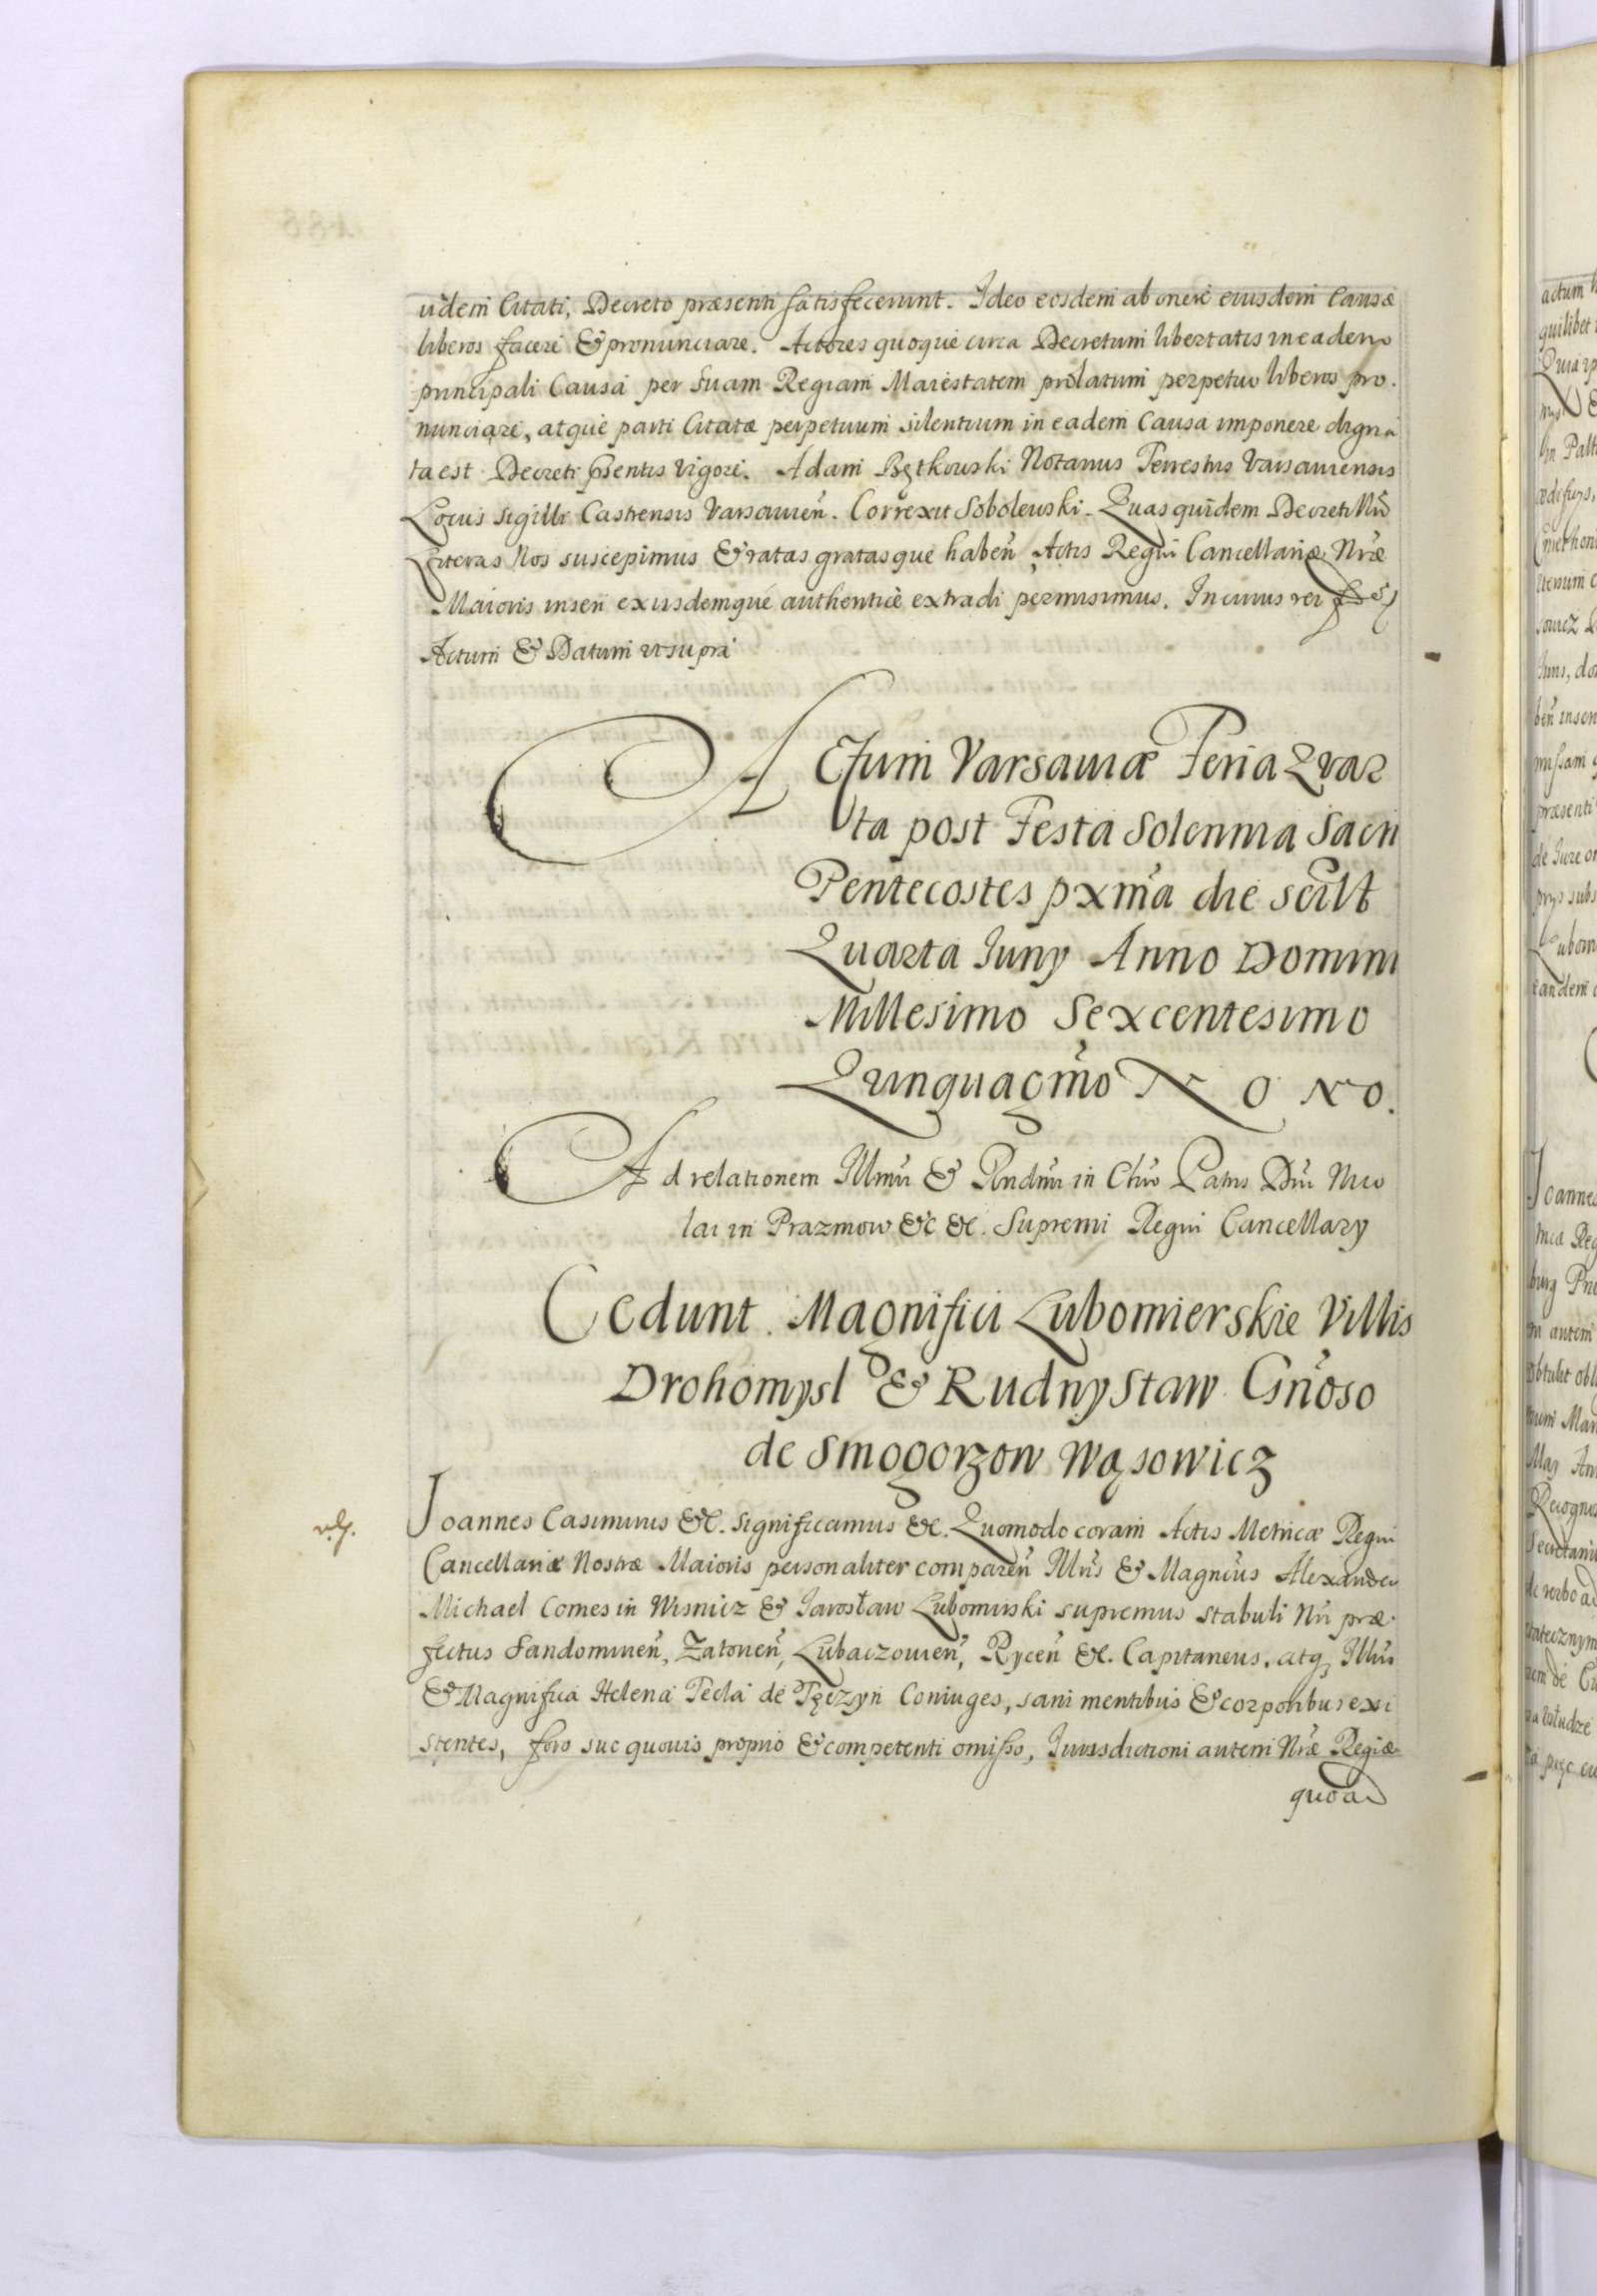 iidem Citati, Decreto præsenti satisfecerunt. Ideo eosdem ab onere eiusdem Causæ
liberos facere & pronunciare. Actores quoque circa Decretum libertatis in eadem
principali Causa per Suam Regiam Maiestatem prolatum perpetuo liberos pro.
nunciare, atque parti Citatæ perpetuum silentium in eadem Causa imponere digna
ta est Decreti psentis vigore. Adam Bętkowski Notarius Terrestris Varsauiensis
Locus Sigilli Castrensis Varsauien. Correxit Sobolewski. Quas quidem Decreti Nri
Literas Nos suscepimus & ratas gratasque haben Actis Regni Cancellariæ Nræ
Maioris inseri ex iisdemque authentice extradi permisimus. In cuius rei fidem
Actum & Datum ut supra
Actum Varsauiæ Feria Quar
ta post Festa Solennia Sacri
Pentecostes pxma die scilt
Quarta Iuny Anno Domini
Millesimo Sexcentesimo
Quinquagmo Nono.
Ad relationem Illmi & Rndmi in Chro Patris Dni Nico
lai in Prazmow &c &c. Supremi Regni Cancellary
Cedunt Magnifici Lubomierskie Villis
Drohomysl & Rudny Staw Gnoso
de Smogorzow Wąsowicz
Joannes Casimirus &c. Significamus &c. Quomodo coram Actis Metricæ Regni
Cancellariæ Nostræ Maioris personaliter comparen Illris & Magncus Alexander
Michael Comes in Wisnicz & Jarosław Lubomirski supremus stabuli Nri præ
fectus Sandomirien, Zatorien, Lubaczouien, Rycen &c. Capitaneus, atq Illris
& Magnifica Helena Tecla de Tęczyn Coniuges, sani mentibus & corporibus exi
stentes, foro suo quouis proprio & competenti omisso, Iurisdictioni autem Nræ Regiæ
quoad